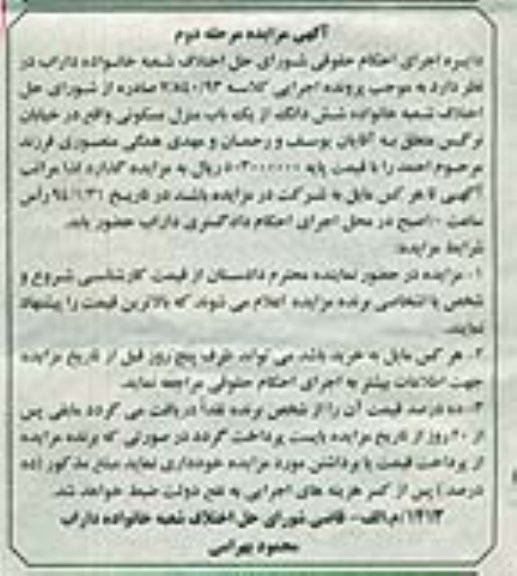 آگهی مزایده مرحله دوم
دایره اجرای احکام حقوقی شورای حل اختلاف شعبه خانواده داراب در
نظر دارد به موجب پرونده اجرایی کلاسه صادره از شورای حل
اختلاف شعبه خانواده شش دانگ از یک باب منزل مسکونی واقع در خیابان
نرگس متعلق به آقایان یوسف و رحمان و مهدی همگی منصوری فرزند
مرحوم احمد را با قیمت پایه ریال به مزایده گذارد لذا مراتب
آگهی تا هر کس مایل به شرکت در مزایده باشد در تاریخ رأس
ساعت ۱۰صبح در محل اجرای احکام دادگستری داراب حضور یابد.
شرایط مزایده:
۱- مزایده در حضور نماینده محترم دادستان از قیمت کارشناسی شروع و
شخص یا اشخاصی برنده مزایده اعلام می شوند که بالاترین قیمت را پیشنهاد
نمایند.
۲- هر کس مایل به خرید باشد می تواند ظرف پنج روز قبل از تاریخ مزایده
جهت اطلاعات بیشتر به اجرای احکام حقوقی مراجعه نماید.
۳- ده درصد قیمت آن را از شخص برنده نقداً دریافت می گردد مابقی پس
از ۲۰ روز از تاریخ مزایده بایست پرداخت گردد در صورتی که برنده مزایده
از پرداخت قیمت یا برداشتن مورد مزایده خودداری نماید مبلغ مذکور (ده
درصد) پس از کسر هزینه های اجرایی به نفع دولت ضبط خواهد شد.
۱۴۱۳/م.الف- قاضی شورای حل اختلاف شعبه خانواده داراب
محمود بهرامی